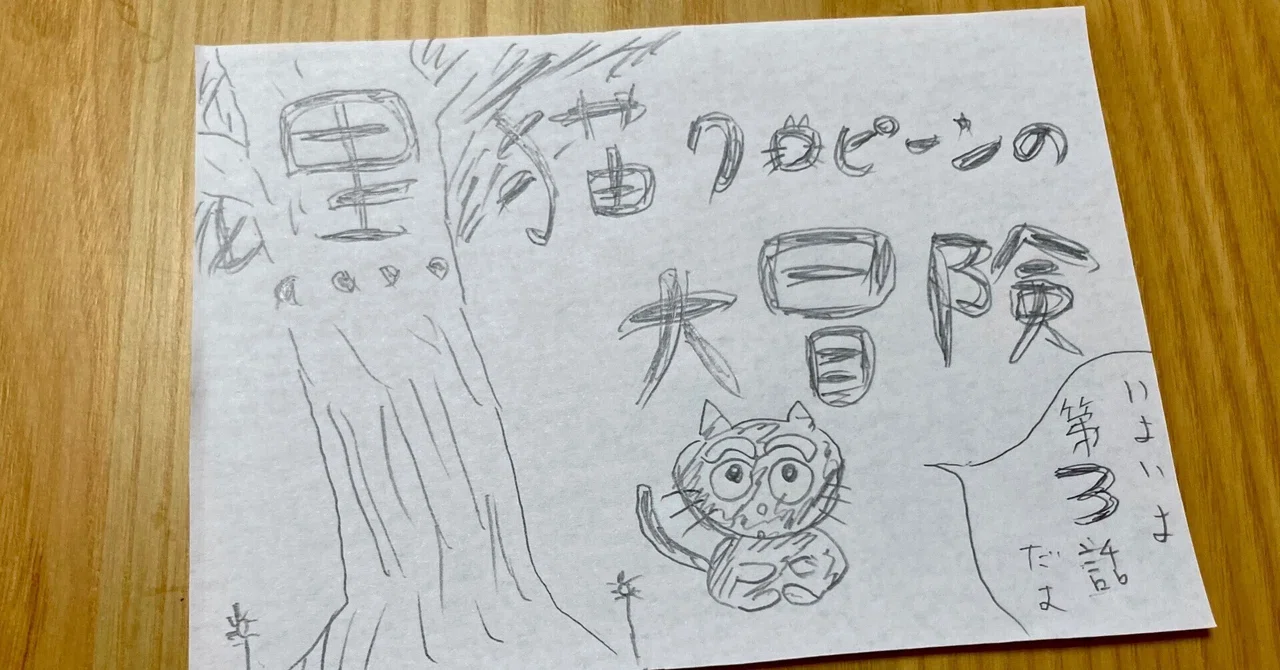 黒猫クロピーンの
大冒険
いよいよ
第3話
だよ